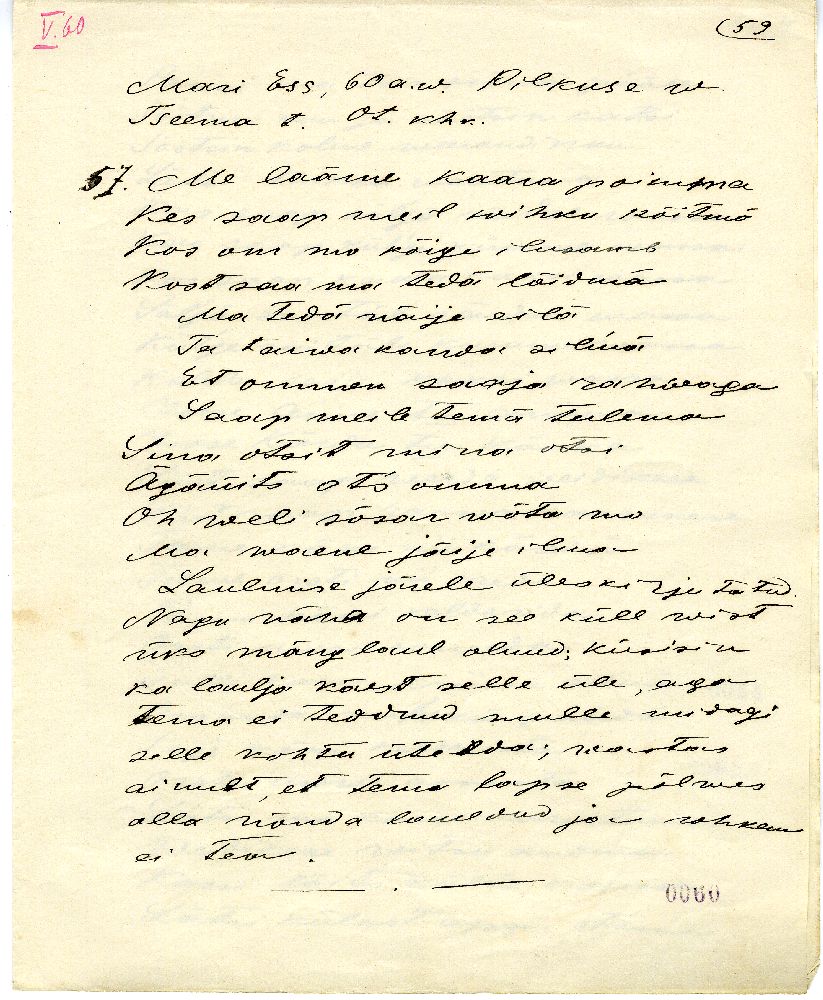 V.60
(59
Mari Ess, 60 a.w. Pilkuse w.
Tseema t. Ot. khk.
57. Me lääme kaara poimma
Kes saap meil wihku köitmä
Kos om mo kõige ilusamb
Kost saa ma tedä löidmä
Ma tedä näije eilä
Ta taiwa kanda silmä
Et ommen saaja rahwaga
Saap meile temä tulema
Sina otsit mina otsi
Egäüits ots omma
Oh weli sõsar wõta mo
Ma waene jäije ilma
Laulmise järele üleskirjutatud.
Nagu näha on see küll wist
üks mäng laul olnud; küsisin
ka laulja käest selle üle, aga
tema ei teadnud mulle midagi
selle kohta ütelda; wastas
ainult, et tema lapse põlwes
olla nõnda lauldud ja rohkem
ei tea.
0060